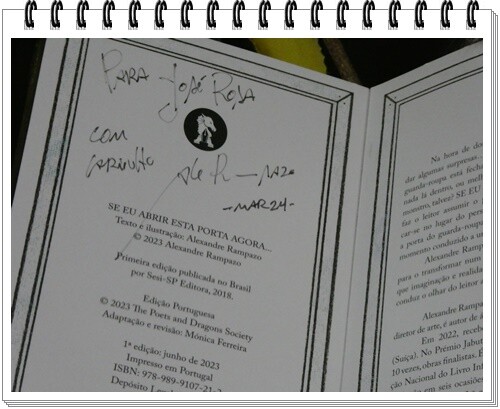 PARA JOSÉ ROSA
COM
CARINHO
-MAR24-
SE EU ABRIR ESTA PORTA AGORA...
Texto e ilustração: Alexandre Rampazo
© 2023 Alexandre Rampazo
Primeira edição publicada no Brasil
por Sesi-SP Editora, 2018.
Edição Portuguesa
© 2023 The Poets and Dragons Society
Adaptação e revisão: Mónica Ferreira
1ª edição: junho de 2023
Impresso em Portugal
ISBN: 978-989-9107-21-2
Depósito
Na hora de do
dar algumas surpresas
guarda-roupa está fecha
nada lá dentro, ou melh
monstro, talvez? SE EU
faz o leitor assumir o
car-se no lugar do perso
a porta do guarda-roupa
momento conduzido a u
Alexandre Rampa
para o transformar num
que imaginação e realida
conduz e olhar do leitor
Alexandre Rampa
diretor de arte, é autor de
Em 2022, receb
(Suíça). No Prémio Jabut
10 vezes, obras finalistas. É
ção Nacional do Livro Inf
em seis ocasiões